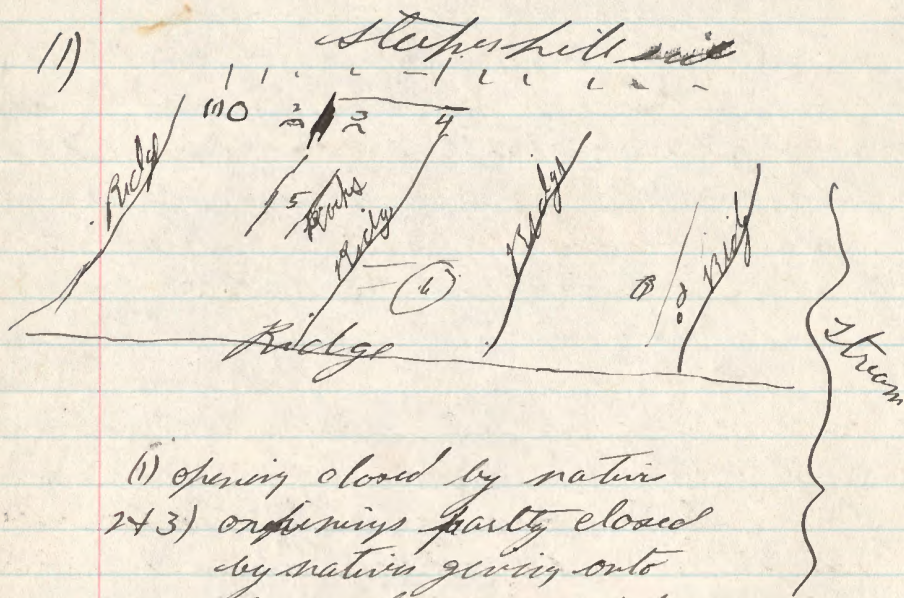 (1)
steeper hill side
Ridge
(1)
2
3
4
5
Rocks
Ridge
6
Ridge
Ridg
Ridge
Stream
(1) opening closed by natives
2 & 3) openings partly closed
by natives giving onto